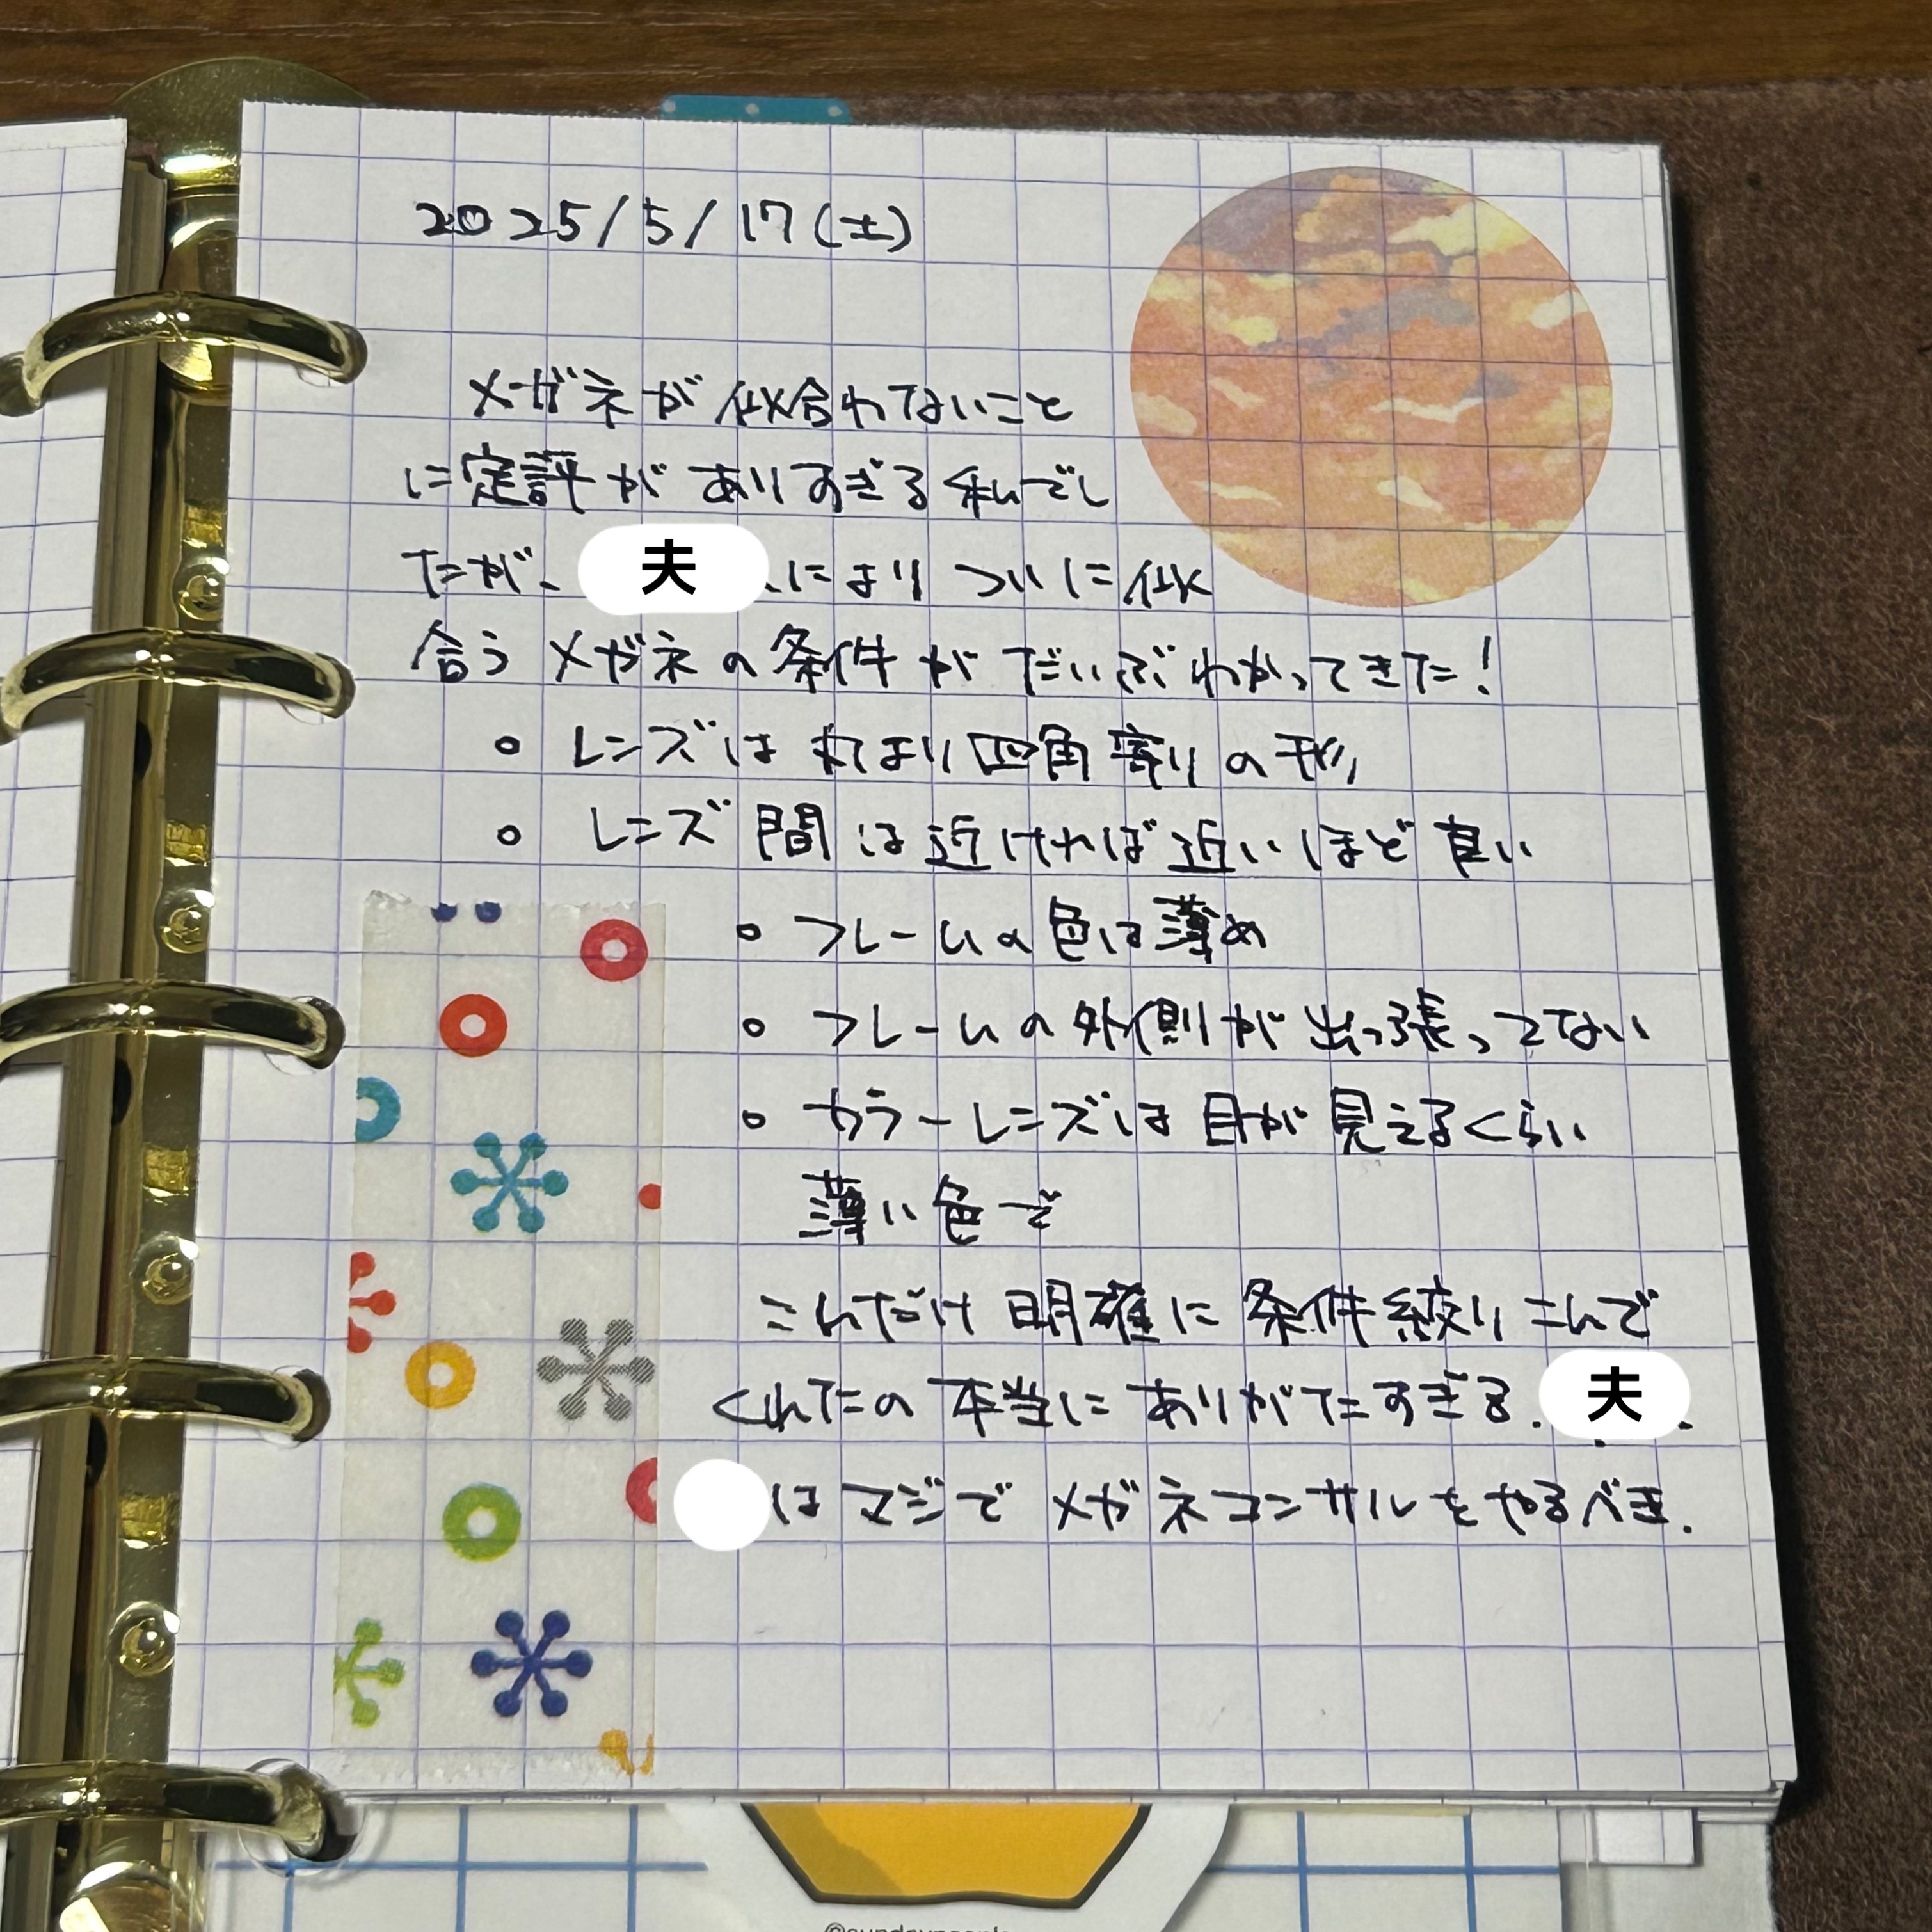 2025/5/17(土)
メガネが似合わてないこと
に定評がありすぎる私でし
たが、夫により ついに似
合う メガネの条件が だいぶわかってきた!
○ レンズは 丸より四角寄りの形
○ レンズ間は近ければ近いほど良い
○ フレームの色は薄め
○ フレームの外側が出っ張ってない
○ カラーレンズは目が見えるくらい
薄い色で
これだけ明確に条件絞りこんで
くれたの本当にありがたすぎる. 夫
はマジでメガネコンサルをやるべき.